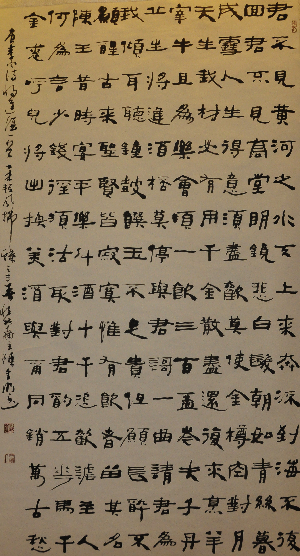 君不見黃河之水天上來奔流到海不復
回君不見高堂明鏡悲白髮朝如青絲暮
成雪人生得意須盡歡莫使金樽空對月
天生我材必有用千金散盡還復來烹羊
宰牛且為樂會須一飲三百杯岑夫子丹
丘生將進酒杯莫停與君歌一曲請君為
我傾耳聽鐘鼓饌玉不足貴但願長醉不
願醒古來聖賢皆寂寞惟有飲者留其名
陳王昔時宴平樂斗酒十千恣歡謔主人
何為言少錢徑須沽取對君酌五花馬千
金裘呼兒將出換美酒與爾同銷萬古愁
李白詩將進酒一首